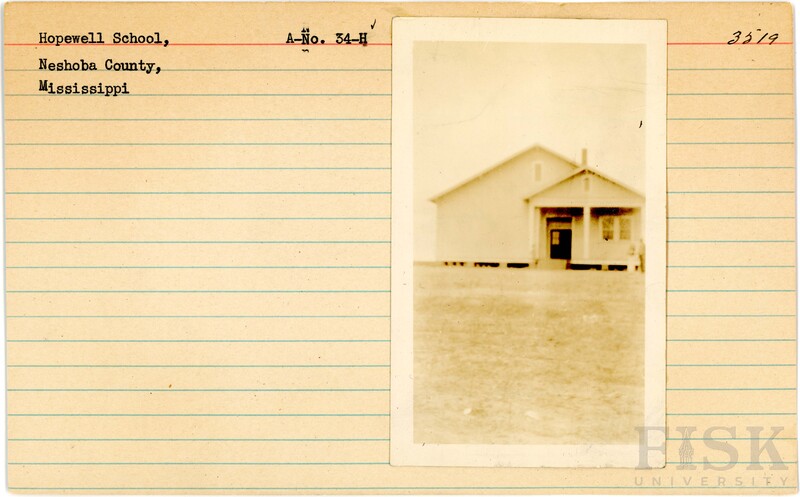 Hopewell School, A-No. 34-H 3519
Neshoba County,
Mississippi
FISK
UNIVERSITY